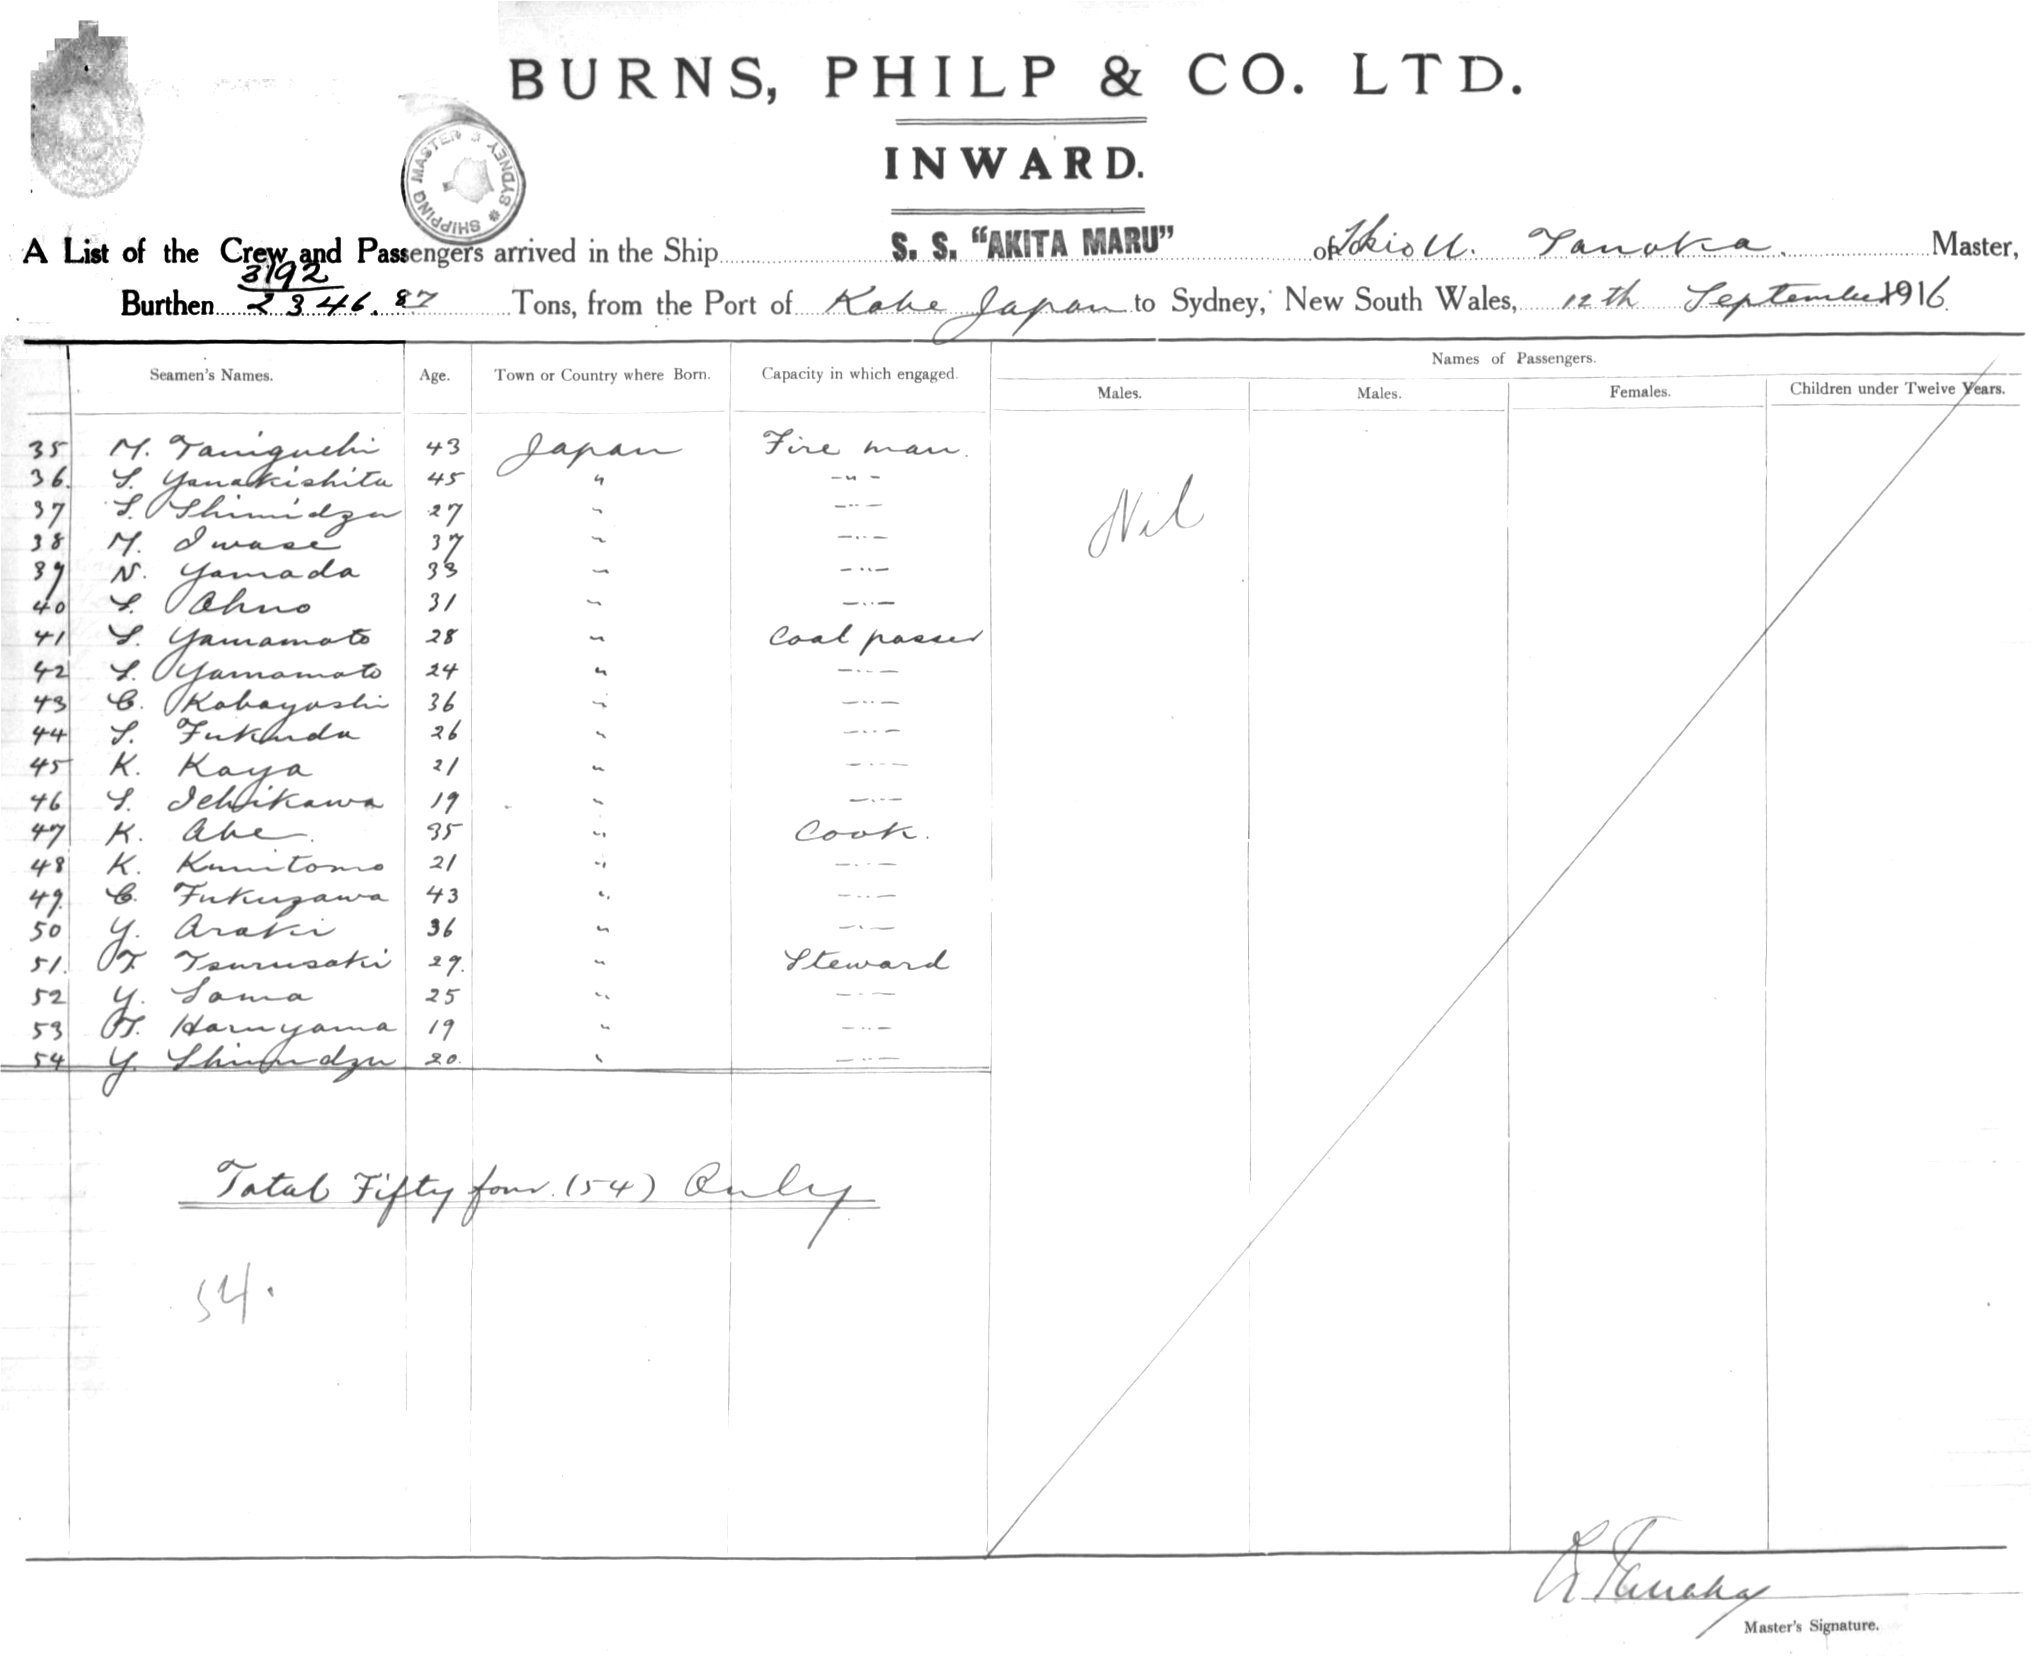 BURNS, PHILP & CO. LTD.
INWARD.
SHIPPING MASTER SYDNEY
A List of the Crew and Passengers arrived in the Ship S. S. "AKITA MARU" of Tokio U. Tanaka. Master,
3192
Burthen 2346.87 Tons, from the Port of Kobe Japan to Sydney, New South Wales, 12th September 1916.
Names of Passengers.
Seamen's Names. Age. Town or Country where Born. Capacity in which engaged.
Males. Males. Females. Children under Twelve Years.
35 M. Taniguchi 43 Japan Fire man.
36. S. Yanakishita 45 " -"-
37 S. Shimidzu 27 " -"-
38 M. Iwase 37 " -"-
39 N. Yamada 33 " -"-
40 S. Ohno 31 " -"-
41 S. Yamamoto 28 " Coal passer
42 S. Yamamoto 24 " -"-
43 C. Kobayashi 36 " -"-
44 S. Fukuda 26 " -"-
45 K. Kaya 21 " -"-
46 S. Ichikawa 19 " -"-
47 K. Abe. 35 " Cook.
48 K. Kunitomo 21 " -"-
49. C. Fukuzawa 43 " -"-
50 Y. Araki 36 " -"-
51. T. Tsurusaki 29. " Steward
52 Y. Soma 25 " -"-
53 T. Haruyama 19 " -"-
54 Y. Shimidzu 20. " -"-
Nil
Total Fifty four (54) Only
54.
Tanaka
Master's Signature.